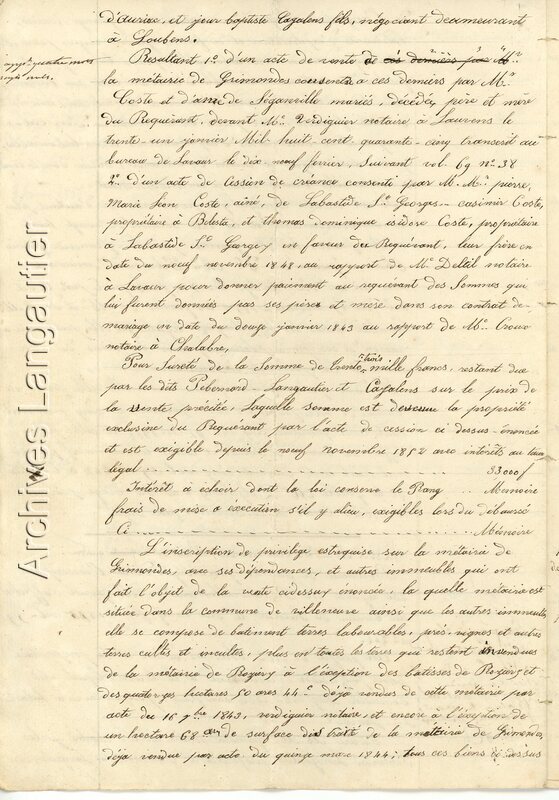 d'auriac, et jean baptiste Cazalens fils, négociant demeurant
à Loubens.
Resultant 1o. d'un acte de vente de ces derniers par Mr.
la métairie de Grimondes consentie à ces derniers par Mr.
Coste et dame de Séganville mariés, décédés, père et mère
du Requérant, devant Me. Verdiguier notaire à Lavaur le
trente-un janvier Mil-huit-cent quarante-cinq transcrit au
bureau de Lavaur le dix-neuf fevrier, suivant vol. 69 no. 38
2o. d'un acte de Cession de créance consenti par M. Mr. pierre,
Marie Léon Coste, ainé, de Labastide St. Georges - casimir Coste,
propriétaire à Beleste, et thomas dominique isidore Coste, propriétaire
à Labastide St. Georges en faveur du Requérant, leur frère en
date du neuf novembre 1848, au rapport de Me. Delteil notaire
à Lavaur pour donner paiement au requérant des Sommes qui
lui furent données par ses père et mère dans son contrat de
mariage en date du douze janvier 1843 au rapport de Me.
notaire à Chalabre,
Pour Sureté de la Somme de trente-trois mille francs, restant due
par les dits Pebernard - Langautier et Cazalens sur le prix de
la vente précitée, Laquelle somme est devenue la propriété
exclusive du Requérant par l'acte de cession ci dessus énoncée
et est exigible depuis le neuf novembre 1852 avec intérêts au taux
légal 33000 f
Intérêt à échoir dont la loi conserve le Rang .. Mémoire
frais de mise a execution s'il y a lieu, exigibles lors du déboursé
Ci Mémoire
L'inscription de privilège est requise sur la métairie de
Grimondes, avec ses dépendances, et autres immeubles qui ont
fait l'objet de la vente cidessus énoncée, la quelle métairie est
située dans la commune de villeneuve ainsi que les autres immeubles
elle se compose de batiment terres labourables, prés, vignes et autres
terres cultes et incultes, plus en toutes les terres qui restent invendues
de la métairie de à l'éxception des batisses de et
des quatorze hectares 50 ares 44 c. déjà vendus de cette métairie par
acte du 16 9bre 1843, verdiguier notaire, et encore à l'éxception de
un hectare 68 ares de surface distrait de la métairie de Grimondes
déja vendue par acte du quinze mars 1844; tous ces biens ci dessus
Archives Langautier